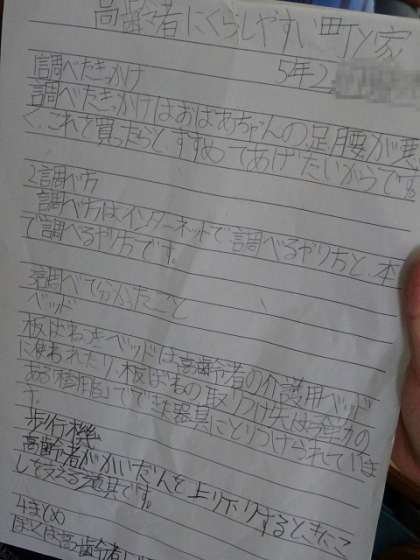 高齢者にくらしやすい町と家
5年2
1調べたきっかけ
調べたきっかけはおばあちゃんの足、腰が悪
く、これを買ったらとすすめてあげたいからです。
2調べ方
調べ方はインターネットで調べるやり方と、本
で調べるやり方です。
3調べて分かったこと
ベッド
板ばねをベッドは高齢者の介護用ベッド
に使われたり、板ばねの取りつけ
ある
歩行機
高齢者がかいだんを上り下りするときに
しを支える道具です。
4まとめ
ぼくは高齢者に